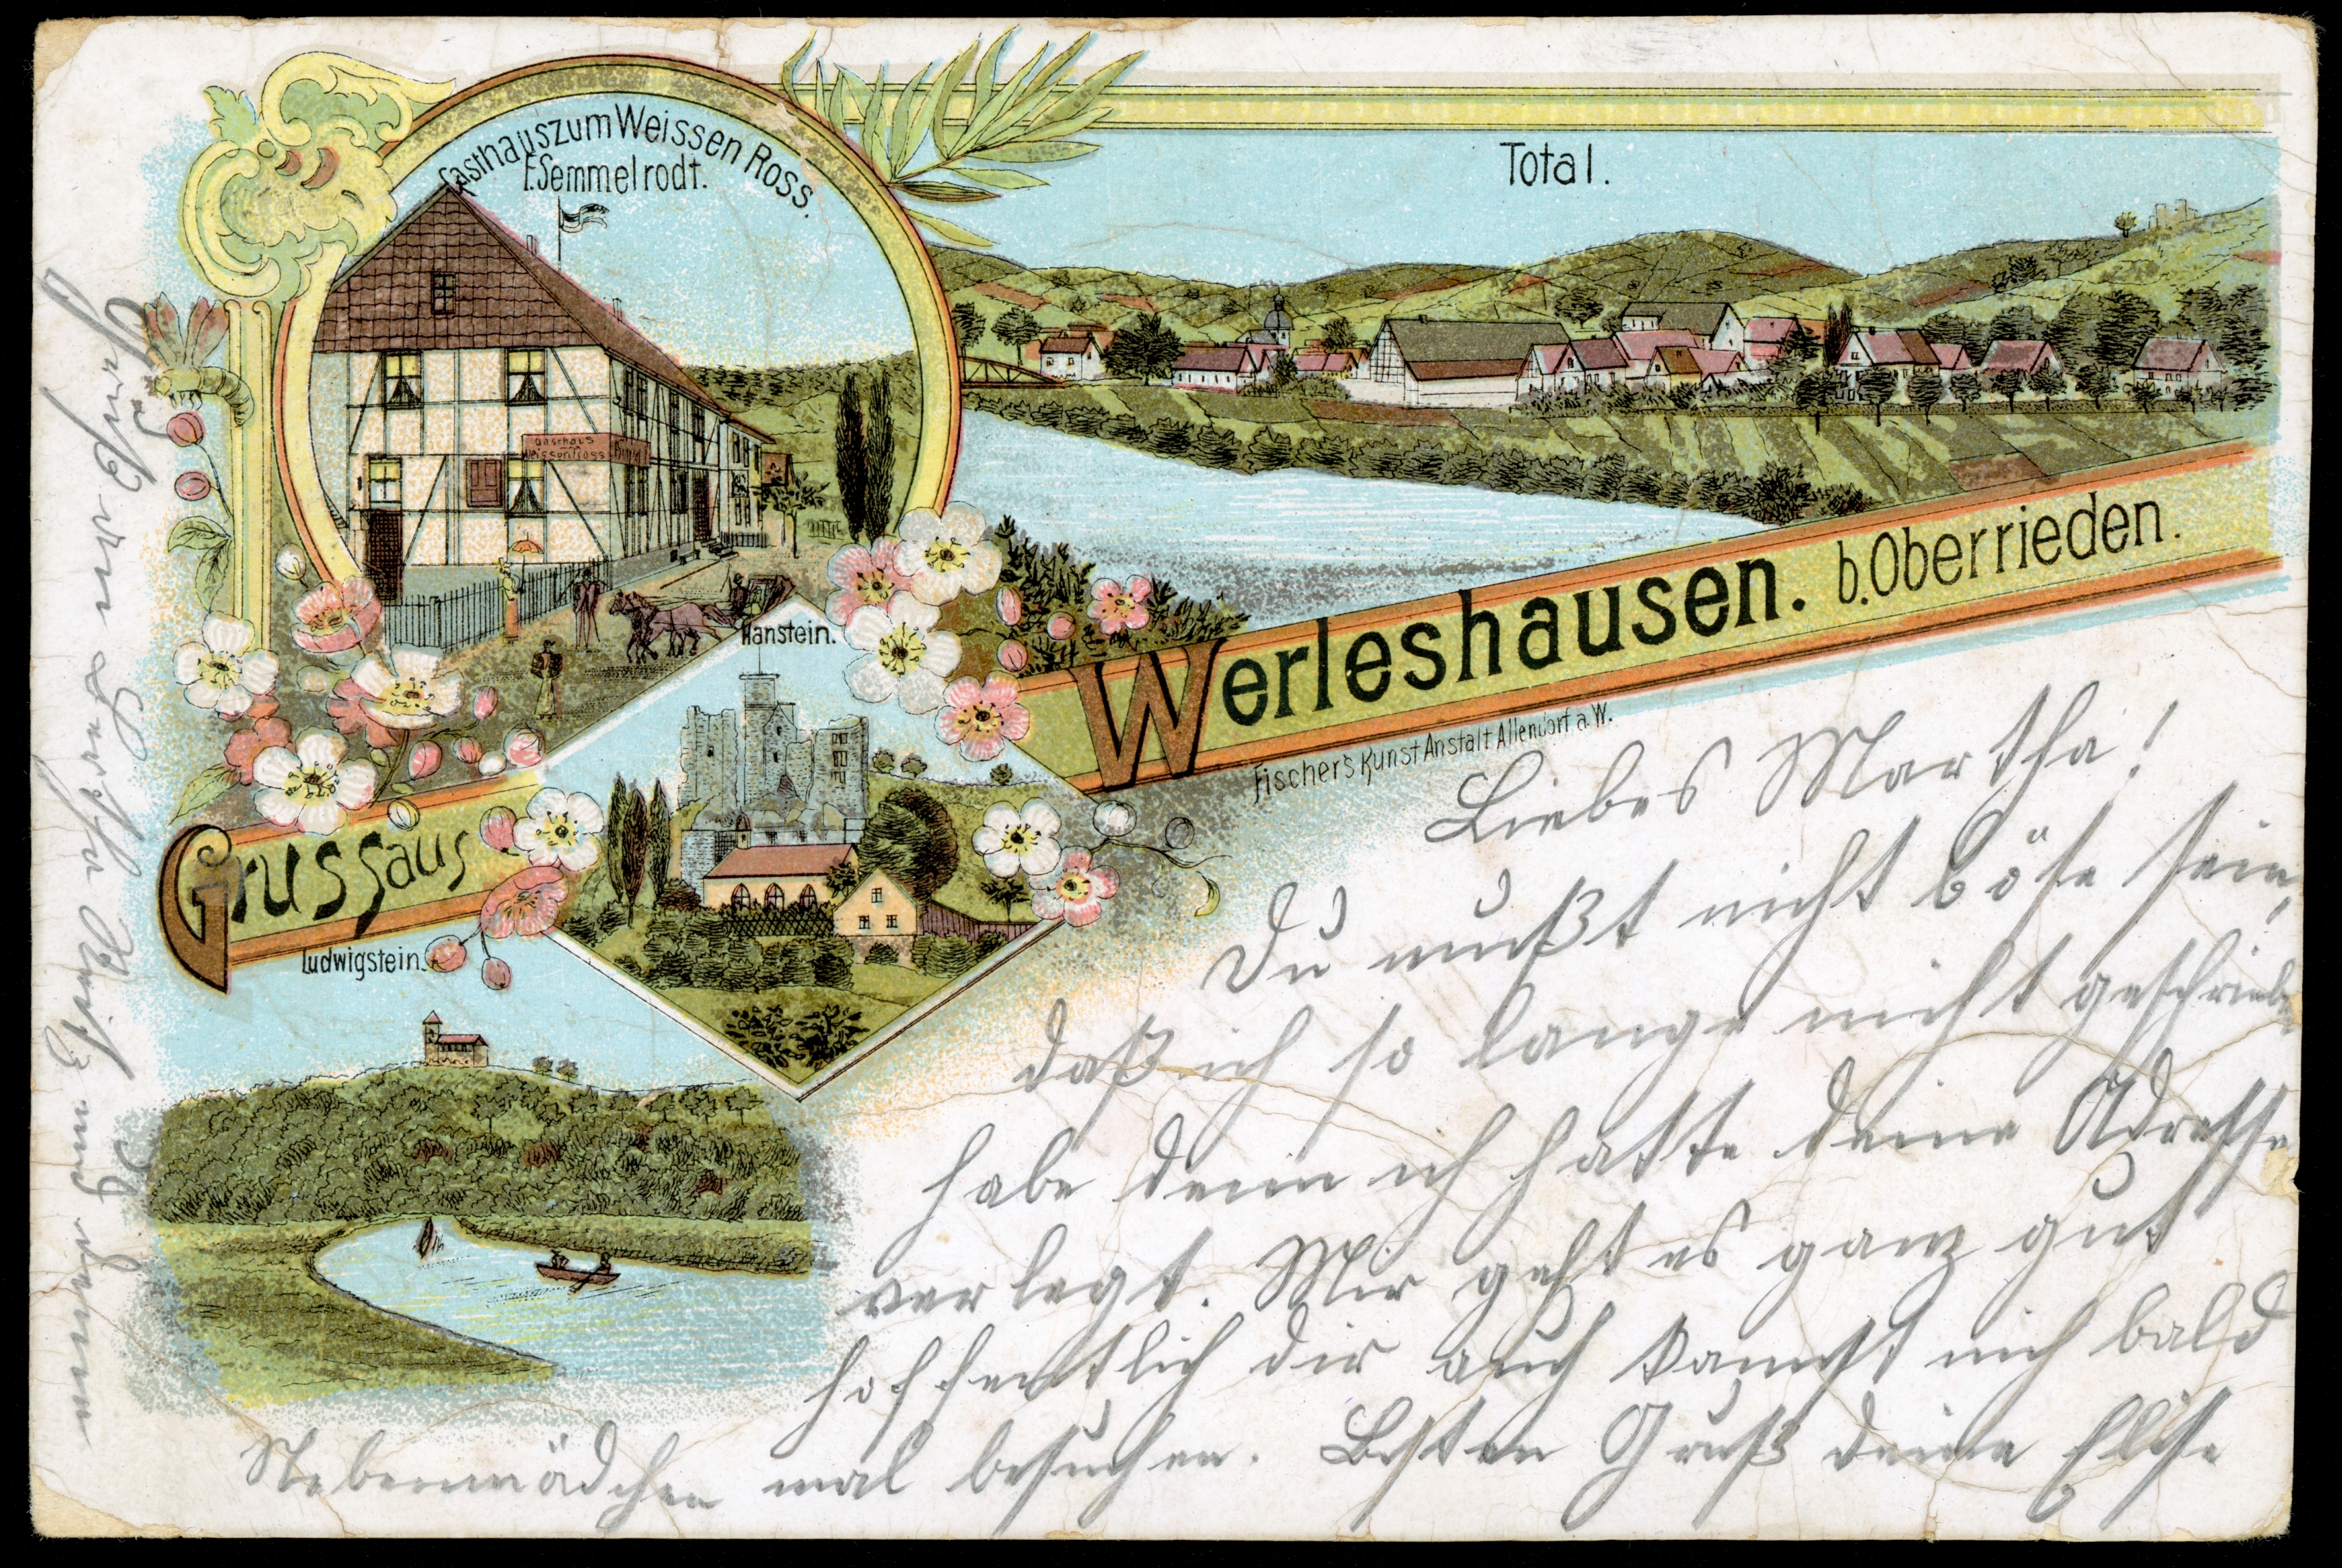 Gasthaus zum Weissen Ross.
F. Semmelrodt.
Total.
Gasthaus
Weissen Ross
Hanstein.
Gruss aus
Werleshausen. b. Oberrieden.
Fischer's Kunst Anstalt Allendorf a. W.
Ludwigstein.
Liebes Martha!
Du mußt nicht böse sein,
daß ich so lange nicht geschrieben
habe denn ich hatte deine Adresse
verlegt. Mir geht es ganz gut
hoffentlich dir auch kannst mich bald
mal besuchen. Besten Gruß deine Elise
Nebenmädchen
Gruß von